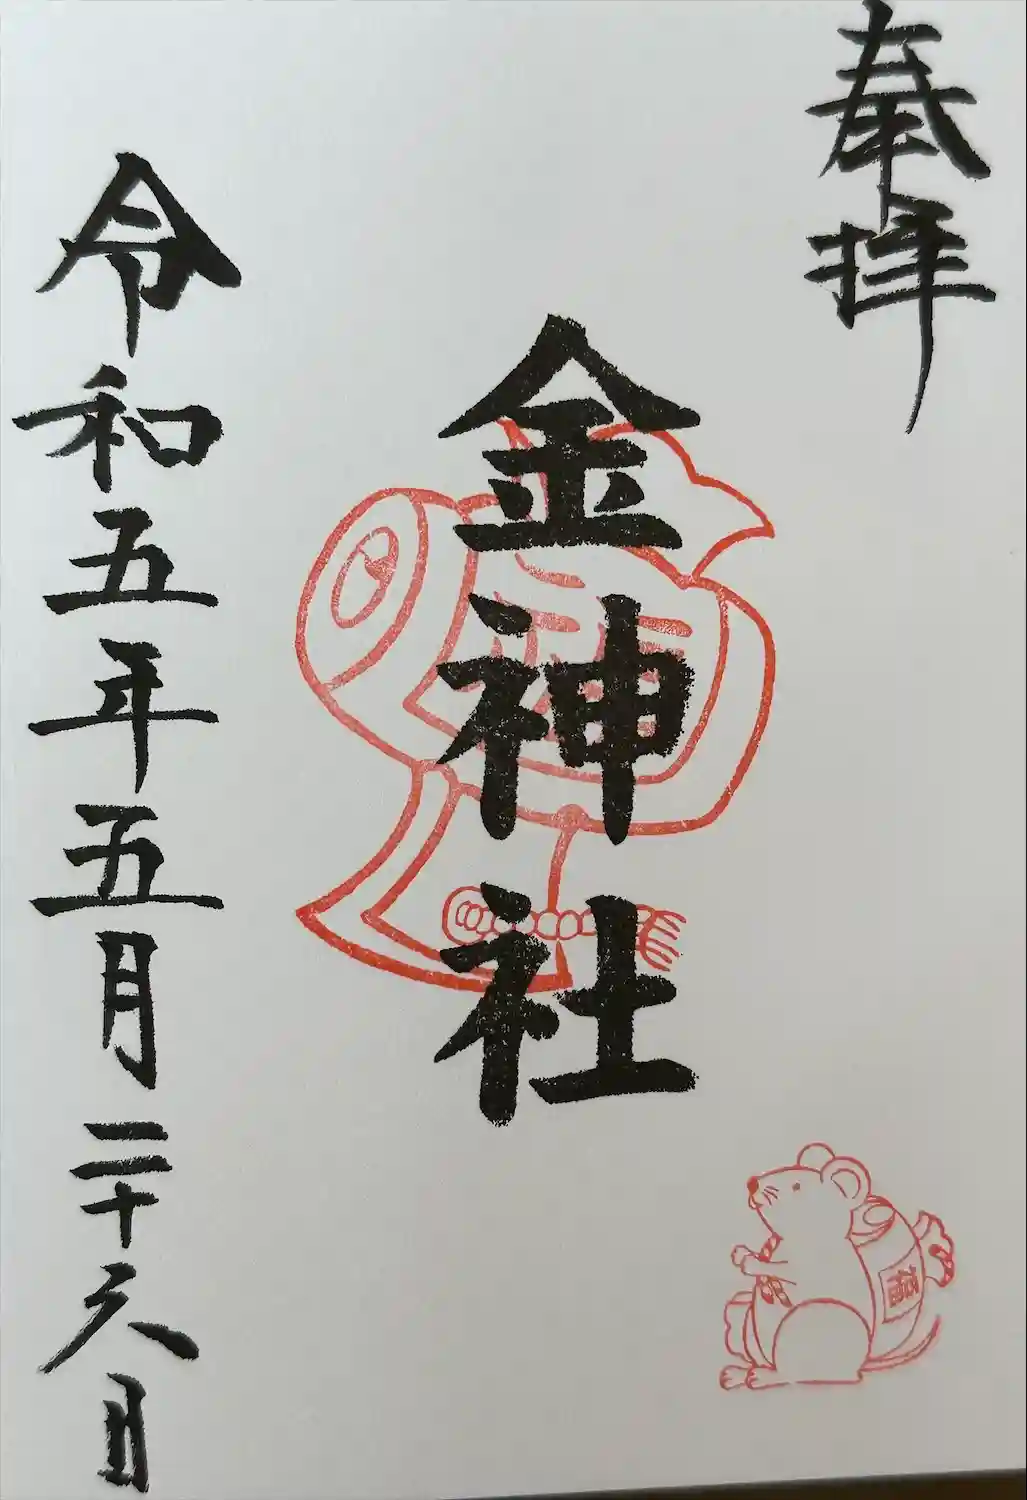 奉拝
金神社
令和五年五月二十八日